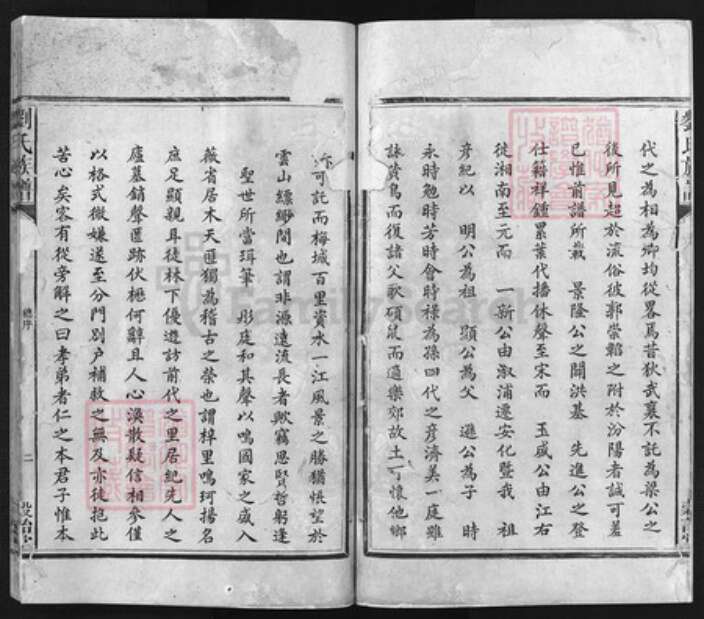 代之為相為卿均從畧焉昔狄武襄不託為梁公之
後所見超於流俗彼郭崇韜之附於汾陽者誠可羞
已惟前譜所載 景隆公之開洪基 先進公之登
仕籍祥鍾累葉代播休聲至宋而 玉威公由江右
徙湘南至元而 一新公由漵浦遷安化暨我 祖
彥紀以 明公為祖 顯公為父 遜公為子 時
永時勉時芳時會時祿為孫四代之彥濟美一庭雖
詠 鳥而復諸父歌碩鼠而適樂郊故土可懷他鄉
可託而梅城百里資水一江風景之勝猶悵望於
雲山縹緲間也謂非源遠流長者歟竊思賢哲躬逢
聖世所當珥筆 彤庭和其聲以鳴國家之盛入
薇省居木天匪獨為稽古之榮也謂梓里鳴珂揚名
庶足顯親耳徒林下優遊訪前代之里居紀先人之
廬墓銷聲匿跡伏櫪何辭且人心渙散疑信相參僅
以格式微嫌遂至分門別户補救之無及亦徒抱此
苦心矣客有從旁解之曰孝弟者仁之本君子惟本
劉氏族譜
總序
二